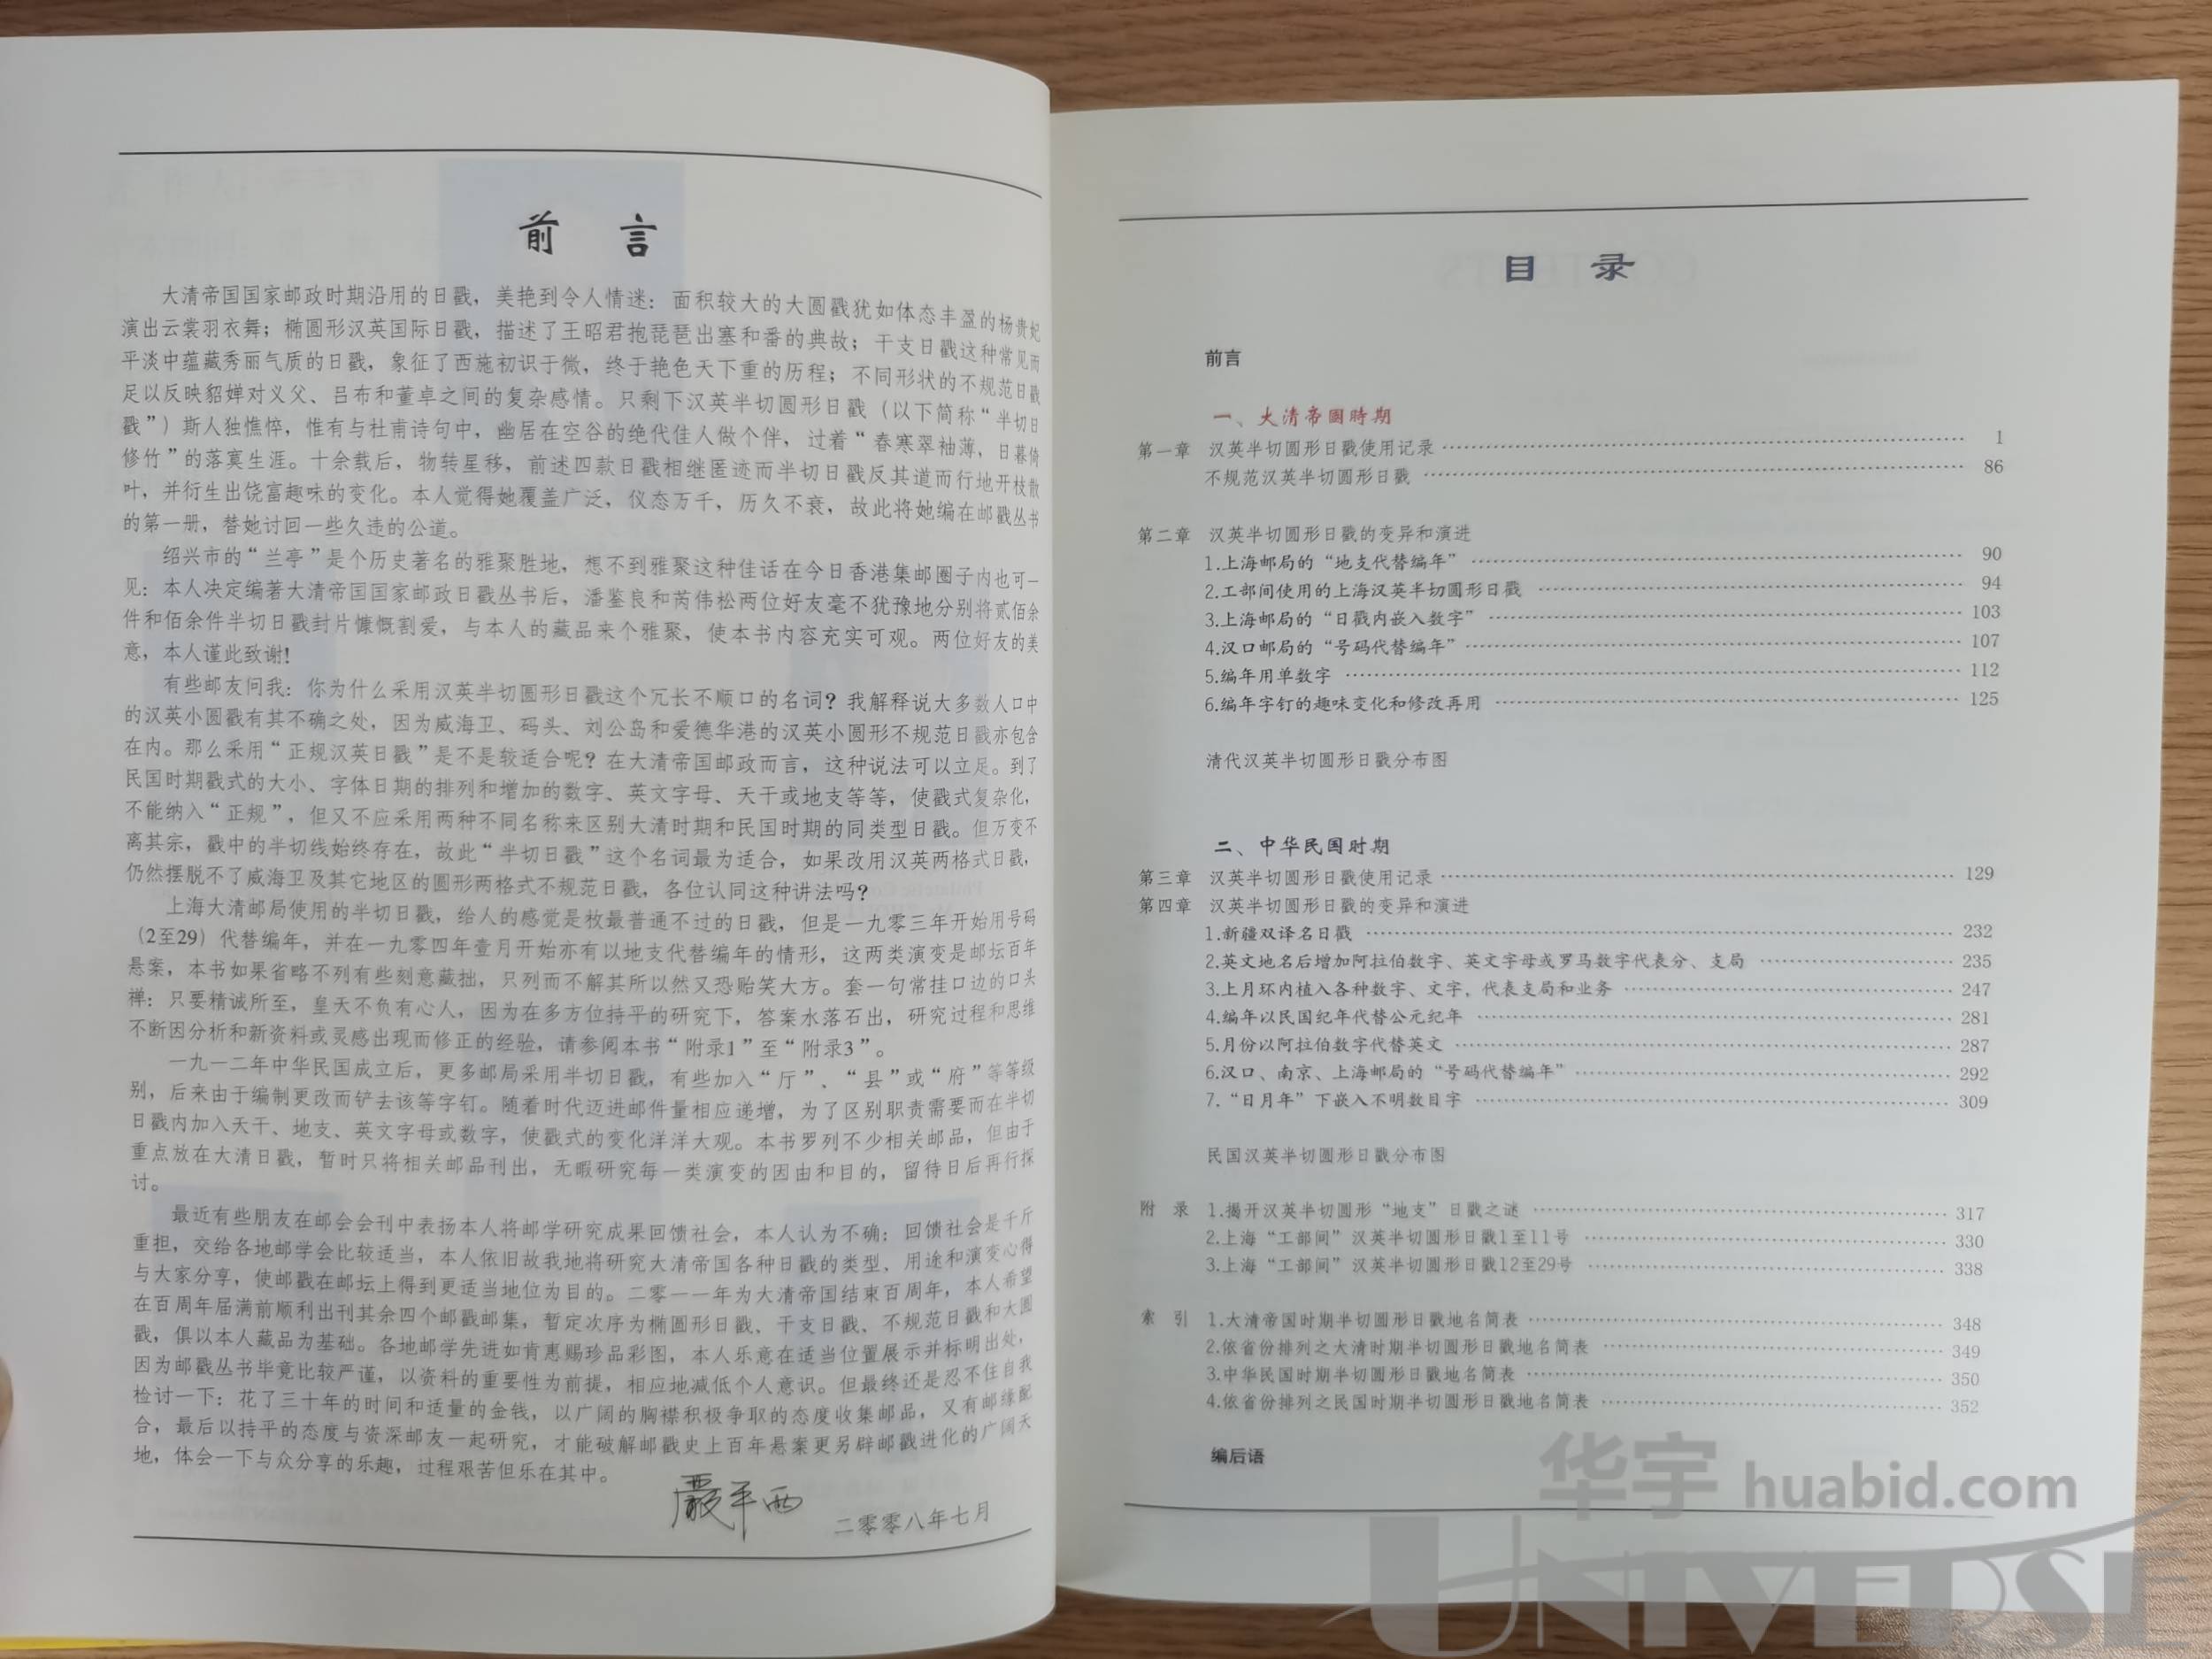 前 言
大清帝国国家邮政时期沿用的日戳，美艳到令人情迷：面积较大的大圆戳犹如体态丰盈的杨贵妃
演出云裳羽衣舞；椭圆形汉英国际日戳，描述了王昭君抱琵琶出塞和番的典故；干支日戳这种常见而
平淡中蕴藏秀丽气质的日戳，象征了西施初识于微，终于艳色天下重的历程；不同形状的不规范日戳
足以反映貂婵对义父、吕布和董卓之间的复杂感情。只剩下汉英半切圆形日戳（以下简称“半切日
戳”）斯人独憔悴，惟有与杜甫诗句中，幽居在空谷的绝代佳人做个伴，过着“春寒翠袖薄，日暮倚
修竹”的落寞生涯。十余载后，物转星移，前述四款日戳相继匿迹而半切日戳反其道而行地开枝散
叶，并衍生出饶富趣味的变化。本人觉得她覆盖广泛，仪态万千，历久不衰，故此将她编在邮戳丛书
的第一册，替她讨回一些久违的公道。
绍兴市的“兰亭”是个历史著名的雅聚胜地，想不到雅聚这种佳话在今日香港集邮圈子内也可一
见：本人决定编著大清帝国国家邮政日戳丛书后，潘鉴良和芮伟松两位好友毫不犹豫地分别将贰佰余
件和佰余件半切日戳封片慷慨割爱，与本人的藏品来个雅聚，使本书内容充实可观。两位好友的美
意，本人谨此致谢!
有些邮友问我：你为什么采用汉英半切圆形日戳这个冗长不顺口的名词？我解释说大多数人口中
的汉英小圆戳有其不确之处，因为威海卫、码头、刘公岛和爱德华港的汉英小圆形不规范日戳亦包含
在内。那么采用“正规汉英日戳”是不是较适合呢？在大清帝国邮政而言，这种说法可以立足。到了
民国时期戳式的大小、字体日期的排列和增加的数字、英文字母、天干或地支等等，使戳式复杂化，
不能纳入“正规”，但又不应采用两种不同名称来区别大清时期和民国时期的同类型日戳。但万变不
离其宗，戳中的半切线始终存在，故此“半切日戳”这个名词最为适合，如果改用汉英两格式日戳，
仍然摆脱不了威海卫及其它地区的圆形两格式不规范日戳，各位认同这种讲法吗？
上海大清邮局使用的半切日戳，给人的感觉是枚最普通不过的日戳，但是一九零三年开始用号码
（2至29）代替编年，并在一九零四年壹月开始亦有以地支代替编年的情形，这两类演变是邮坛百年
悬案，本书如果省略不列有些刻意藏拙，只列而不解其所以然又恐贻笑大方。套一句常挂口边的口头
禅：只要精诚所至，皇天不负有心人，因为在多方位持平的研究下，答案水落石出，研究过程和思维
不断因分析和新资料或灵感出现而修正的经验，请参阅本书“附录1”至“附录3”。
一九一二年中华民国成立后，更多邮局采用半切日戳，有些加入“厅”、“县”或“府”等等级
别，后来由于编制更改而铲去该等字钉。随着时代迈进邮件量相应递增，为了区别职责需要而在半切
日戳内加入天干、地支、英文字母或数字，使戳式的变化洋洋大观。本书罗列不少相关邮品，但由于
重点放在大清日戳，暂时只将相关邮品刊出，无暇研究每一类演变的因由和目的，留待日后再行探
讨。
最近有些朋友在邮会会刊中表扬本人将邮学研究成果回馈社会，本人认为不确：回馈社会是千斤
重担，交给各地邮学会比较适当，本人依旧故我地将研究大清帝国各种日戳的类型、用途和演变心得
与大家分享，使邮戳在邮坛上得到更适当地位为目的。二零一一年为大清帝国结束百周年，本人希望
在百周年届满前顺利出刊其余四个邮戳邮集，暂定次序为椭圆形日戳、干支日戳、不规范日戳和大圆
戳，俱以本人藏品为基础。各地邮学先进如肯惠赐珍品彩图，本人乐意在适当位置展示并标明出处，
因为邮戳丛书毕竟比较严谨，以资料的重要性为前提，相应地减低个人意识。但最终还是忍不住自我
检讨一下：花了三十年的时间和适量的金钱，以广阔的胸襟积极争取的态度收集邮品，又有邮缘配
合，最后以持平的态度与资深邮友一起研究，才能破解邮戳史上百年悬案更另辟邮戳进化的广阔天
地，体会一下与众分享的乐趣，过程艰苦但乐在其中。
嚴平西
二零零八年七月
目 录
前言
一、大清帝国時期
第一章 汉英半切圆形日戳使用记录 1
不规范汉英半切圆形日戳 86
第二章 汉英半切圆形日戳的变异和演进
1.上海邮局的“地支代替编年” 90
2.工部间使用的上海汉英半切圆形日戳 94
3.上海邮局的“日戳内嵌入数字” 103
4.汉口邮局的“号码代替编年” 107
5.编年用单数字 112
6.编年字钉的趣味变化和修改再用 125
清代汉英半切圆形日戳分布图
二、中华民国时期
第三章 汉英半切圆形日戳使用记录 129
第四章 汉英半切圆形日戳的变异和演进
1.新疆双译名日戳 232
2.英文地名后增加阿拉伯数字、英文字母或罗马数字代表分、支局 235
3.上月环内植入各种数字、文字，代表支局和业务 247
4.编年以民国纪年代替公元纪年 281
5.月份以阿拉伯数字代替英文 287
6.汉口、南京、上海邮局的“号码代替编年” 292
7.“日月年”下嵌入不明数目字 309
民国汉英半切圆形日戳分布图
附 录 1.揭开汉英半切圆形“地支”日戳之谜 317
2.上海“工部间”汉英半切圆形日戳1至11号 330
3.上海“工部间”汉英半切圆形日戳12至29号 338
索 引 1.大清帝国时期半切圆形日戳地名简表 348
2.依省份排列之大清时期半切圆形日戳地名简表 349
3.中华民国时期半切圆形日戳地名简表 350
4.依省份排列之民国时期半切圆形日戳地名简表 352
编后语
华宇 huabid.com
UNIVERSE